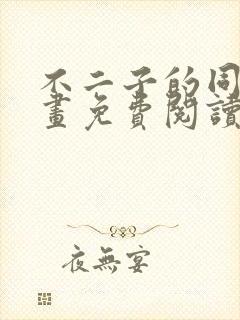 不二子的同
畫免費閱讀
夜無宴